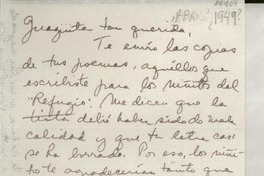 [APRIL? 1949?]
Guagüita tan querida,
Te envío las copias
de tus poemas, aquéllos que
escribiste para los niñitos del
"Refugio". Me dicen que la
tinta debió haber sido de mala
calidad y que tu letra casi
se ha borrado. Por eso, los niñi-
tos te agradecerían tanto que